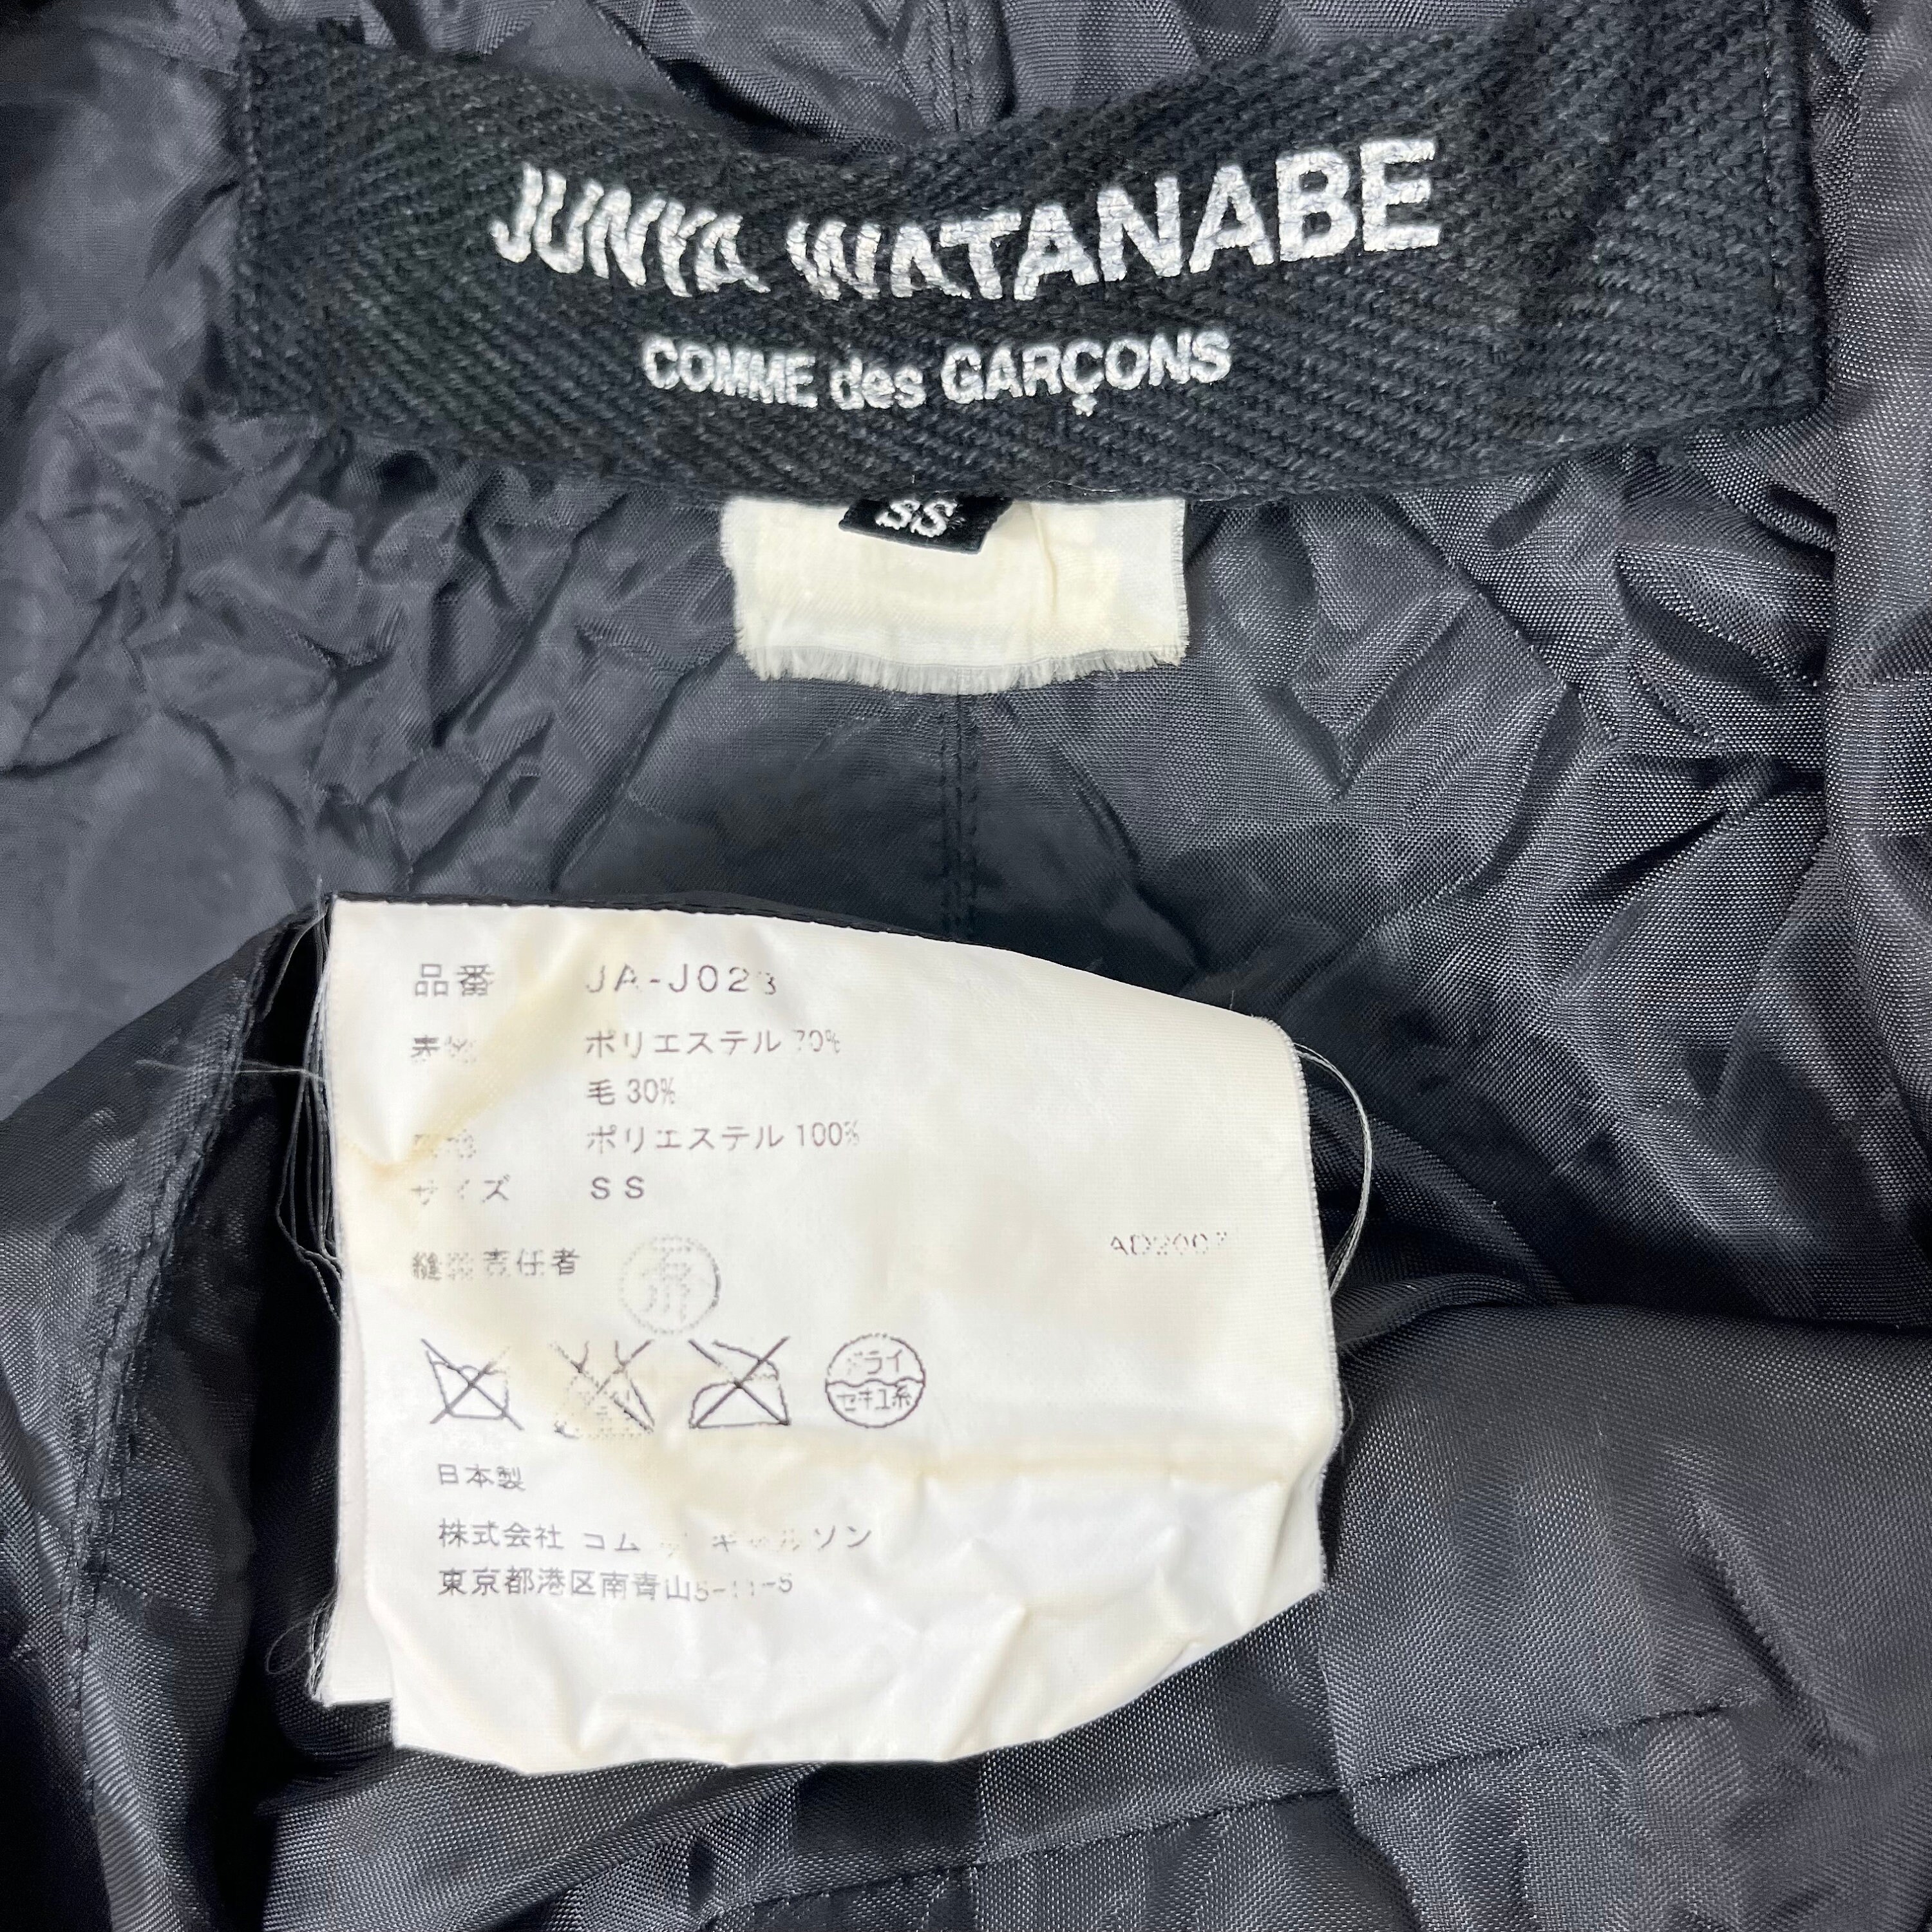 JUNYA WATANABE
COMME des GARÇONS
SS
品番 JA-J023
表地 ポリエステル 70%
毛 30%
ポリエステル 100%
サイズ SS
縫製責任者
ドライ
セキユ系
日本製
株式会社 コム ギャルソン
東京都港区南青山5-11-5